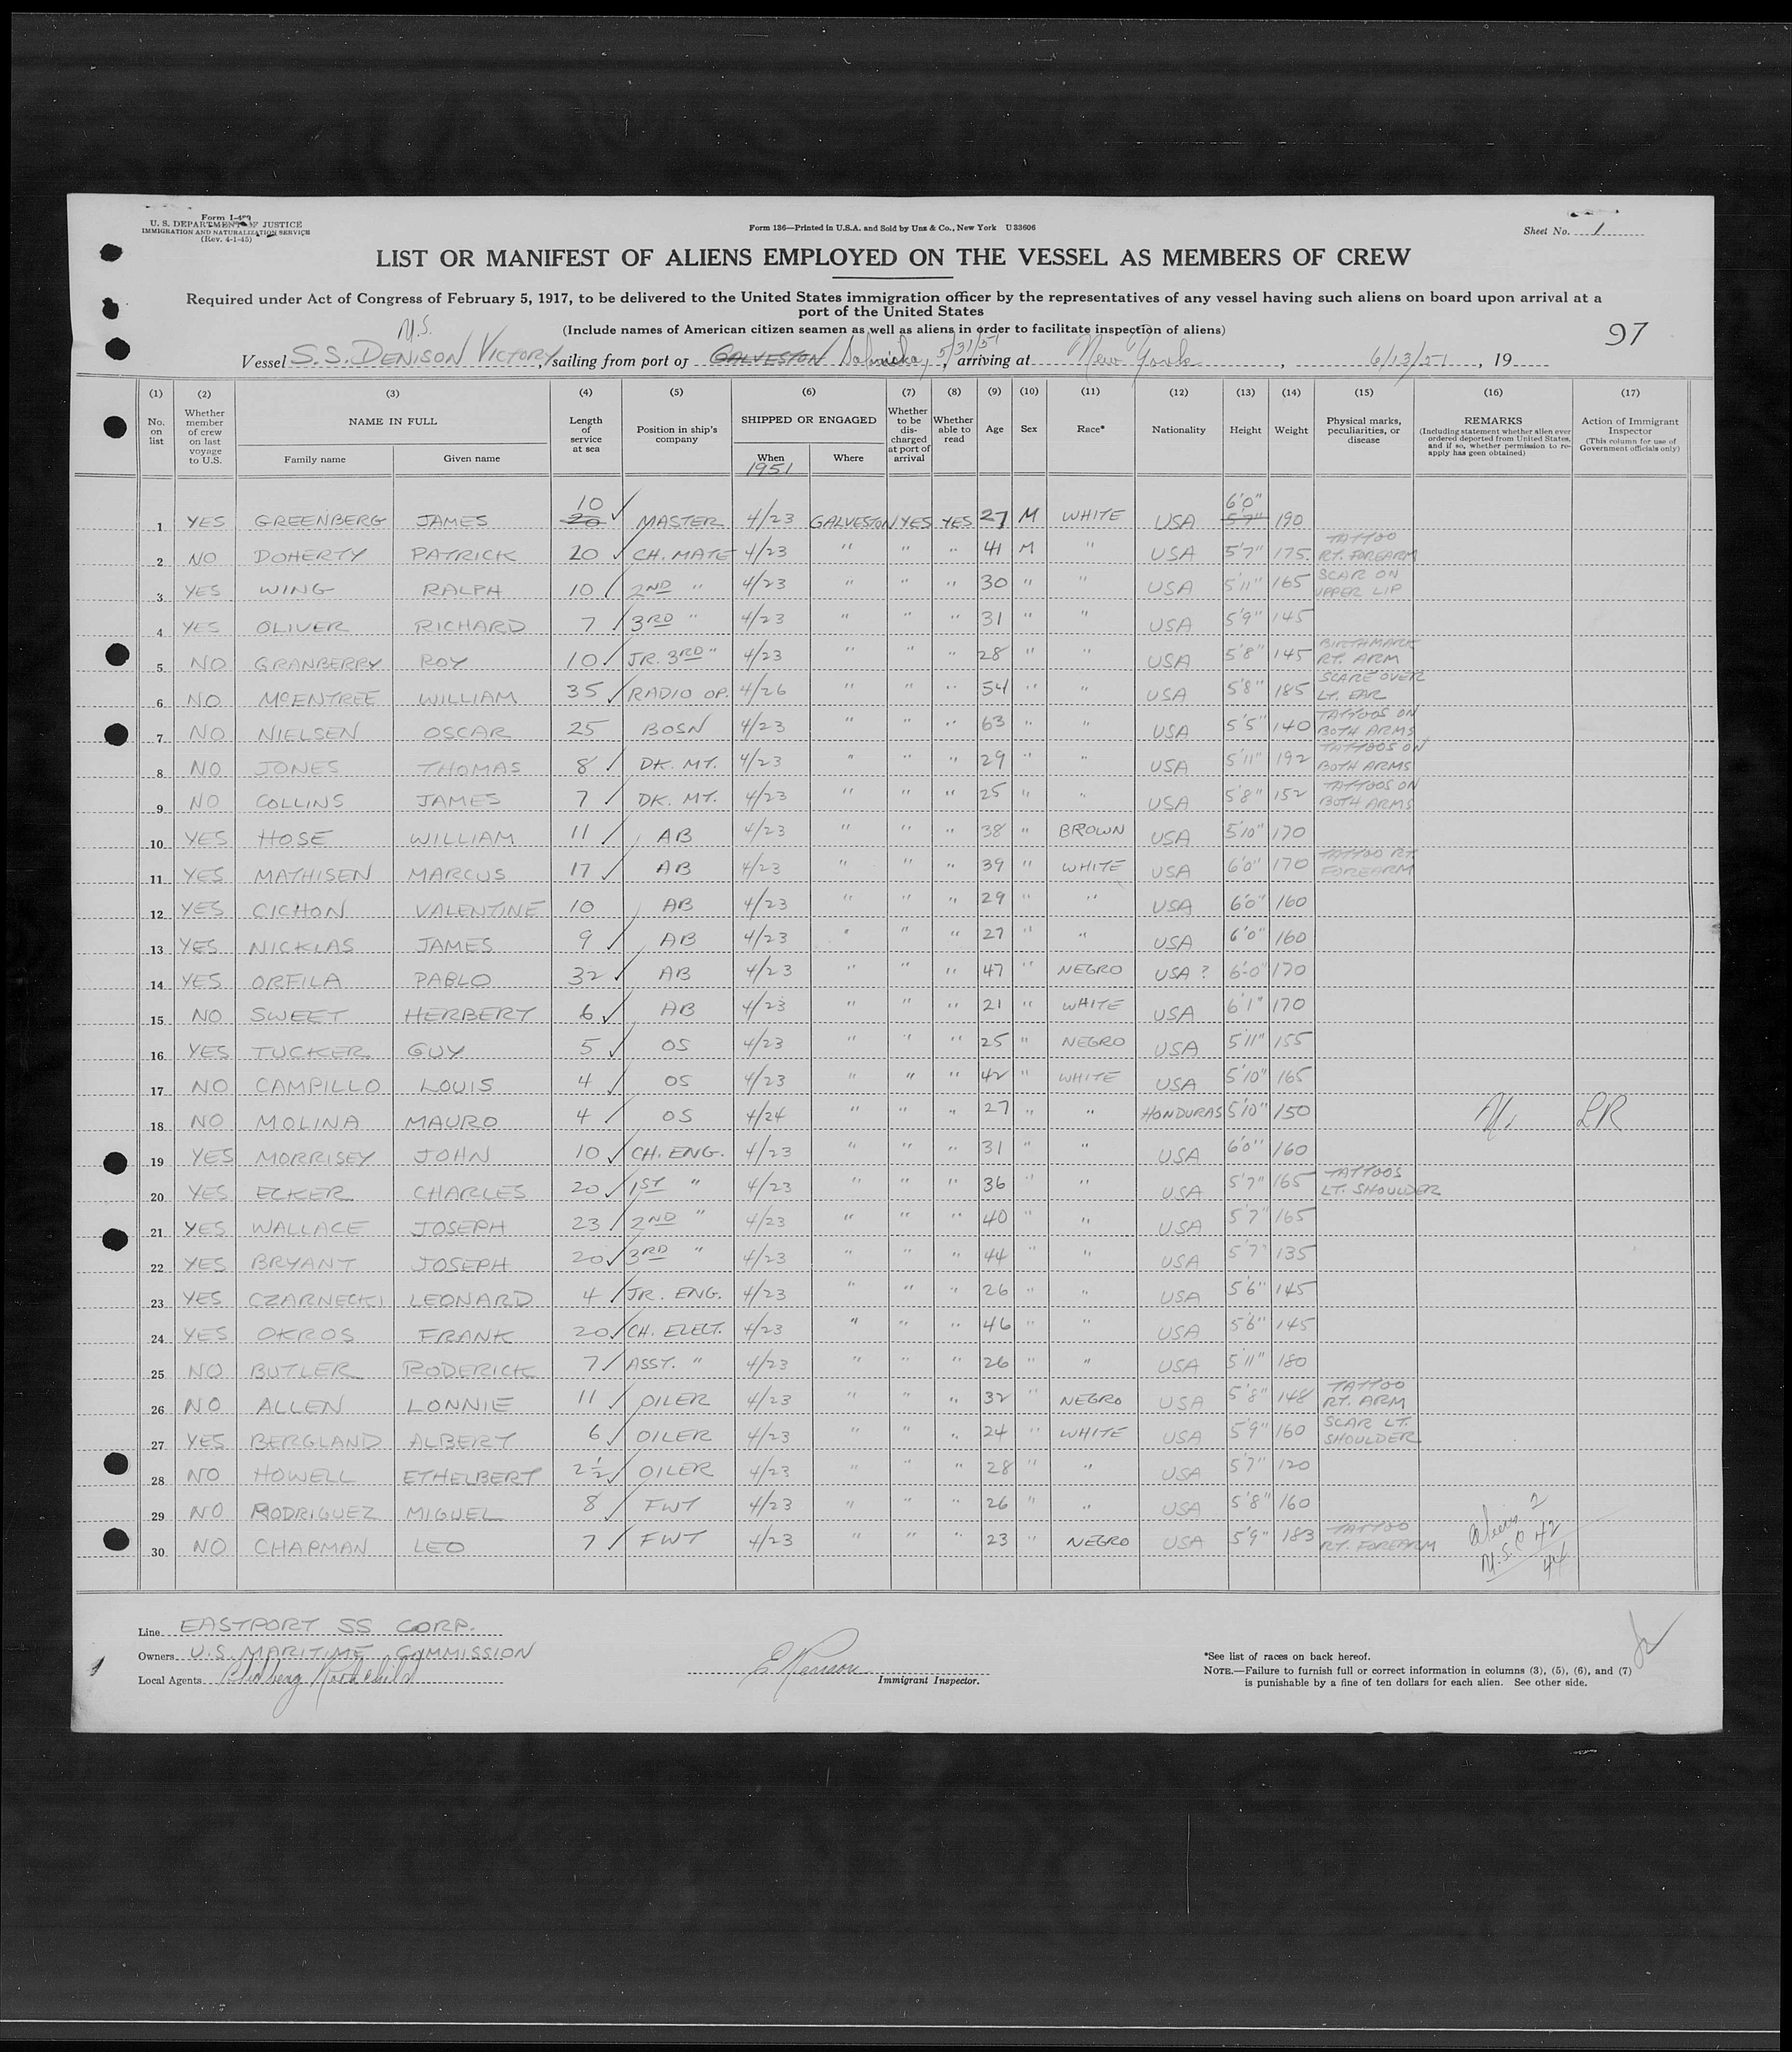 Form I-489
U. S. DEPARTMENT OF JUSTICE
IMMIGRATION AND NATURALIZATION SERVICE
(Rev. 4-1-45)
Form 136—Printed in U.S.A. and Sold by Unz & Co., New York U 33606
Sheet No. 1
LIST OR MANIFEST OF ALIENS EMPLOYED ON THE VESSEL AS MEMBERS OF CREW
Required under Act of Congress of February 5, 1917, to be delivered to the United States immigration officer by the representatives of any vessel having such aliens on board upon arrival at a
port of the United States
(Include names of American citizen seamen as well as aliens in order to facilitate inspection of aliens)
97
Vessel S.S. DENISON VICTORY, sailing from port of GALVESTON 5/31/51, arriving at New York, 6/13/51, 19
(1) (2) (3) (4) (5) (6) (7) (8) (9) (10) (11) (12) (13) (14) (15) (16) (17)
No. on list
Whether member of crew on last voyage to U.S.
NAME IN FULL
Family name
Given name
Length of service at sea
Position in ship's company
SHIPPED OR ENGAGED
When 1951
Where
Whether to be discharged at port of arrival
Whether able to read
Age
Sex
Race*
Nationality
Height
Weight
Physical marks, peculiarities, or disease
REMARKS
(Including statement whether alien ever ordered deported from United States, and if so, whether permission to reapply has geen obtained)
Action of Immigrant Inspector
(This column for use of Government officials only)
1. YES GREENBERG JAMES 20 10 MASTER 4/23 GALVESTON YES YES 27 M WHITE USA 5'7" 6'0" 190
2. NO DOHERTY PATRICK 20 CH. MATE 4/23 " " " 41 M " USA 5'7" 175 TATTOO RT. FOREARM
3. YES WING RALPH 10 2ND " 4/23 " " " 30 " " USA 5'11" 165 SCAR ON UPPER LIP
4. YES OLIVER RICHARD 7 3RD " 4/23 " " " 31 " " USA 5'9" 145
5. NO GRANBERRY ROY 10 JR. 3RD " 4/23 " " " 28 " " USA 5'8" 145 BIRTHMARK RT. ARM
6. NO McENTREE WILLIAM 35 RADIO OP. 4/26 " " " 54 " " USA 5'8" 185 SCARE OVER LT. EAR
7. NO NIELSEN OSCAR 25 BOSN 4/23 " " " 63 " " USA 5'5" 140 TATTOOS ON BOTH ARMS
8. NO JONES THOMAS 8 DK. MT. 4/23 " " " 29 " " USA 5'11" 192 TATTOOS ON BOTH ARMS
9. NO COLLINS JAMES 7 DK. MT. 4/23 " " " 25 " " USA 5'8" 152 TATTOOS ON BOTH ARMS
10. YES HOSE WILLIAM 11 AB 4/23 " " " 38 " BROWN USA 5'10" 170
11. YES MATHISEN MARCUS 17 AB 4/23 " " " 39 " WHITE USA 6'0" 170 TATTOO RT. FOREARM
12. YES CICHON VALENTINE 10 AB 4/23 " " " 29 " " USA 6'0" 160
13. YES NICKLAS JAMES 9 AB 4/23 " " " 27 " " USA 6'0" 160
14. YES ORFILA PABLO 32 AB 4/23 " " " 47 " NEGRO USA ? 6'-0" 170
15. NO SWEET HERBERT 6 AB 4/23 " " " 21 " WHITE USA 6'1" 170
16. YES TUCKER GUY 5 OS 4/23 " " " 25 " NEGRO USA 5'11" 155
17. NO CAMPILLO LOUIS 4 OS 4/23 " " " 42 " WHITE USA 5'10" 165
18. NO MOLINA MAURO 4 OS 4/24 " " " 27 " " HONDURAS 5'10" 150 LR
19 YES MORRISEY JOHN 10 CH. ENG. 4/23 " " " 31 " " USA 6'0" 160
20. YES ECKER CHARLES 20 1ST " 4/23 " " " 36 " " USA 5'7" 165 TATTOOS LT. SHOULDER
21. YES WALLACE JOSEPH 23 2ND " 4/23 " " " 40 " " USA 5'7" 165
22. YES BRYANT JOSEPH 20 3RD " 4/23 " " " 44 " " USA 5'7" 135
23. YES CZARNECKI LEONARD 4 JR. ENG. 4/23 " " " 26 " " USA 5'6" 145
24. YES OKROS FRANK 20 CH. ELECT. 4/23 " " " 46 " " USA 5'6" 145
25. NO BUTLER RODERICK 7 ASST. " 4/23 " " " 26 " " USA 5'11" 180
26. NO ALLEN LONNIE 11 OILER 4/23 " " " 32 " NEGRO USA 5'8" 148 TATTOO RT. ARM
27. YES BERGLAND ALBERT 6 OILER 4/23 " " " 24 " WHITE USA 5'9" 160 SCAR LT. SHOULDER
28. NO HOWELL ETHELBERT 2½ OILER 4/23 " " " 28 " " USA 5'7" 120
29. NO RODRIGUEZ MIGUEL 8 FWT 4/23 " " " 26 " " USA 5'8" 160
30. NO CHAPMAN LEO 7 FWT 4/23 " " " 23 " NEGRO USA 5'9" 183 TATTOO RT. FOREARM
Aliens 2
U.S.C 42
44
Line EASTPORT SS CORP.
Owners U.S. MARITIME COMMISSION
Local Agents
Immigrant Inspector.
*See list of races on back hereof.
NOTE.—Failure to furnish full or correct information in columns (3), (5), (6), and (7)
is punishable by a fine of ten dollars for each alien. See other side.